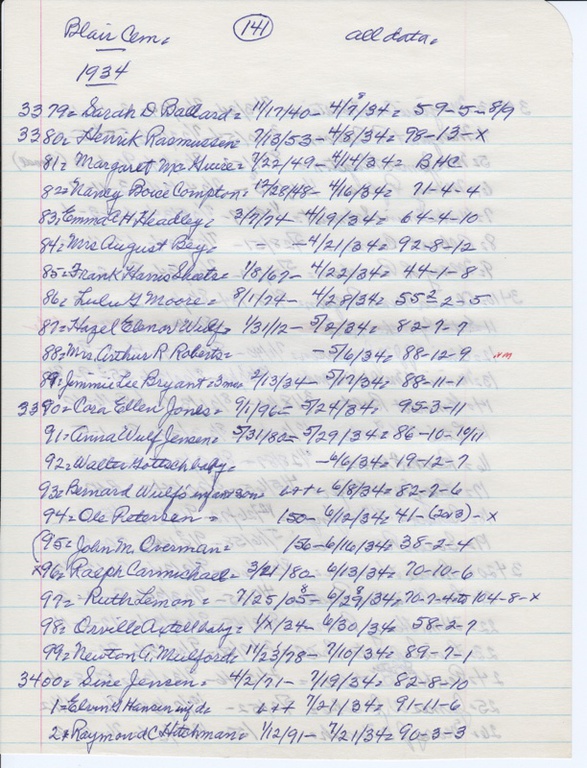 Blair Cem. (141) all data.
1934
3379= Sarah D Ballard= 11/17/40- 4/7/34= 59-5-8/9
3380= Henrik Rasmussen= 7/13/53- 4/8/34= 98-13-x
81= Margaret McGuire= 7/22/49- 4/14/34= BHC
82= Nancy Boise Compton= 12/28/48- 4/16/34= 71-4-4
83= Emma H Headley= 3/7/74- 4/19/34= 64-4-10
84= Mrs August Bey= - - -4/21/34= 92-8-12
85= Frank Harris Shoots= 1/8/67- 4/22/34= 44-1-8
86= Lulu G Moore= 8/1/74- 4/28/34= 55 2-5
87= Hazel Elenor Wulf= 1/31/12- 5/2/34= 82-7-7
88= Mrs. Arthur R Roberts= -5/6/34= 88-12-9
89= Jimmie Lee Bryant=3mo 2/13/34- 5/17/34= 88-11-1
3390= Cora Ellen Jones= 9/1/96- 5/24/34= 95-3-11
91= Anna Wulf Jensen= 5/31/80- 5/29/34= 86-10-10/11
92= Walter Gottsch baby= -6/6/34= 19-12-7
93= Bernard Wulf's infant son= b++= 6/8/34= 82-7-6
94= Ole Petersen= 150- 6/12/34= 41-(2or3)-x
(95= John M. Overman= 156-6/16/34= 38-2-4
x96= Ralph Carmichael= 3/21/80- 6/13/34= 70-10-6
97= Ruth Lemon= -7/25/05- 6/29/34= 70-7-4 to 104-8-x
98= Orville Axtell baby= 4/x/34- 6/30/34= 58-2-7
99= Newton G. Mulford= 11/23/78- 7/10/34= 89-7-1
3400= Sine Jensen= 4/2/71- 7/19/34= 82-8-10
1= Hansen inf d= b++ 7/21/34= 91-11-6
2= Raymond C Hitchman= 7/12/91- 7/21/34= 90-3-3